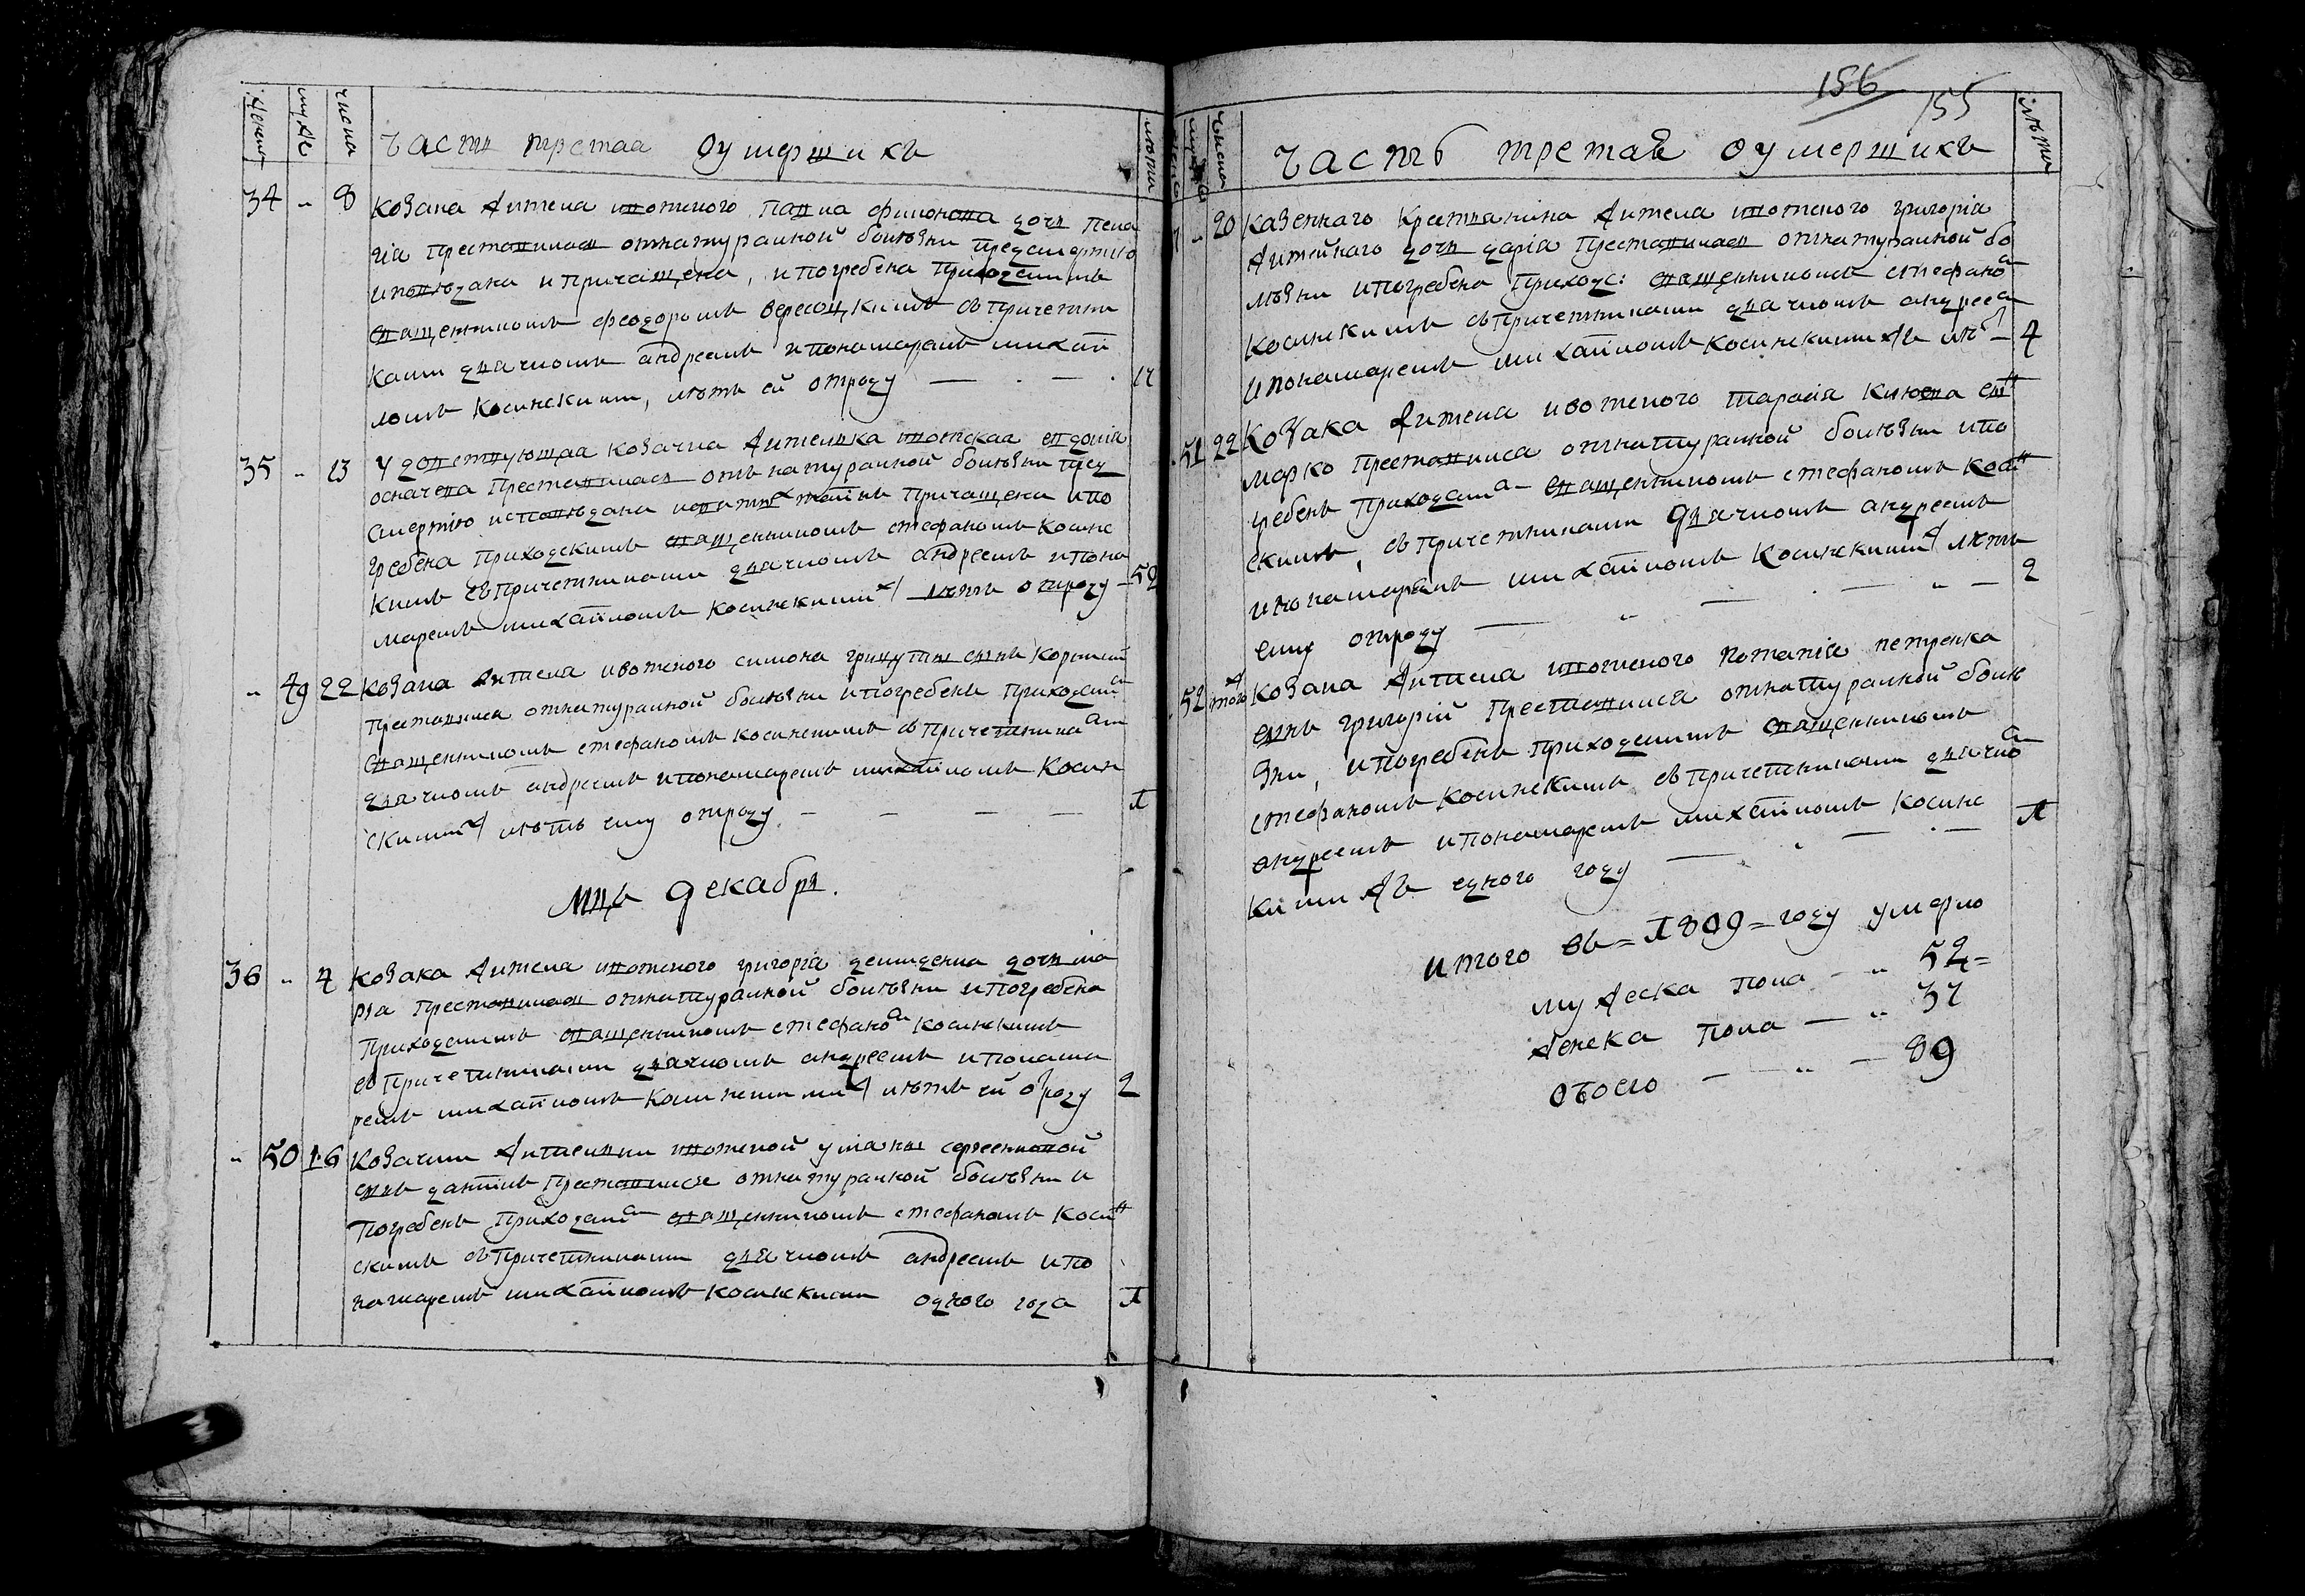 женска
муж
числа
Часть третая оумершихъ
лѣта
34 - 8 Козака жителя ивотского Павла Филонова дочь Пела
гіа преставилася отнатуралной болѣзни предсмертію
исповѣдана и причащена, ипогребена приходскимъ
священникомъ Феодоромъ Вересоцкимъ съ причетни
ками дьячкомъ андреемъ ипономаремъ михай
ломъ Косинскими, лѣтъ ей отроду — . — .
35 - 13 Удовствующая козачка жителка ивотская Евдокіа
преставилася отъ натуралной болѣзни пред
смертію исповѣдана причащена ипо
гребена приходскимъ священникомъ стефаномъ Косинс
кимъ съпричетниками дьячкомъ андреемъ ипоно
маремъ михайломъ косинскими ж лѣтъ отроду - 52
- 49 22 Козака жителя ивотского симона сынъ Корнилій
преставился отнатуралной болѣзни ипогребенъ приходским
священникомъ стефаномъ косинскимъ съ причетниками
дьячкомъ андреемъ ипономаремъ михайломъ Косин
скими ж лѣтъ ему отроду - - - — 1
Мцъ декабрь.
36 - 4 Козака жителя ивотского григоріа демиденка дочь ма
рїа преставилася отнатуралной болѣзни ипогребена
приходскимъ священникомъ стефаном косинскимъ
съ причетниками дьячкомъ андреемъ ипонома
ремъ михайломъ Косинскими ж лѣтъ ей отроду 2
- 50 16 Козачки жителки ивотской уляны
сынъ даніилъ преставился отнатуралной болѣзни и
погребенъ приходским священникомъ стефаномъ косин
скимъ съпричетниками дьячкомъ андреемъ ипо
номаремъ михайломъ косинскими одного года 1
156
155
числа
Часть третая оумершихъ
лѣта
- 20 Казеннаго Крестьянина жителя ивотского григоріа
дочь даріа преставилася отнатуралной бо
лѣзни ипогребена приходс: священникомъ стефаном
косинскимъ съпричетниками дьячкомъ андреем
ипономаремъ михайломъ косинскими жъ лѣт — 4
51 22 Козака жителя ивотского тарасія сын
марко преставился отнатуралной болѣзни ипо
гребенъ приходским священникомъ стефаномъ косин
скимъ, съпричетниками дьячкомъ андреемъ
ипономаремъ михайломъ косинскими ж лѣтъ
ему отроду — „ — . — „ — 2
52 того ж Козака жителя ивотского петренка
сынъ григорій преставился отнатуралной болѣ
зни, ипогребенъ приходскимъ священникомъ
стефаномъ косинскимъ съпричетниками дьячком
андреемъ ипономаремъ михайломъ косинс
кими жъ одного году — . — . — 1
итого въ = 1809 = году умерло
мужеска пола — „ 52 =
женска пола — „ 37
обоего — „ — 89